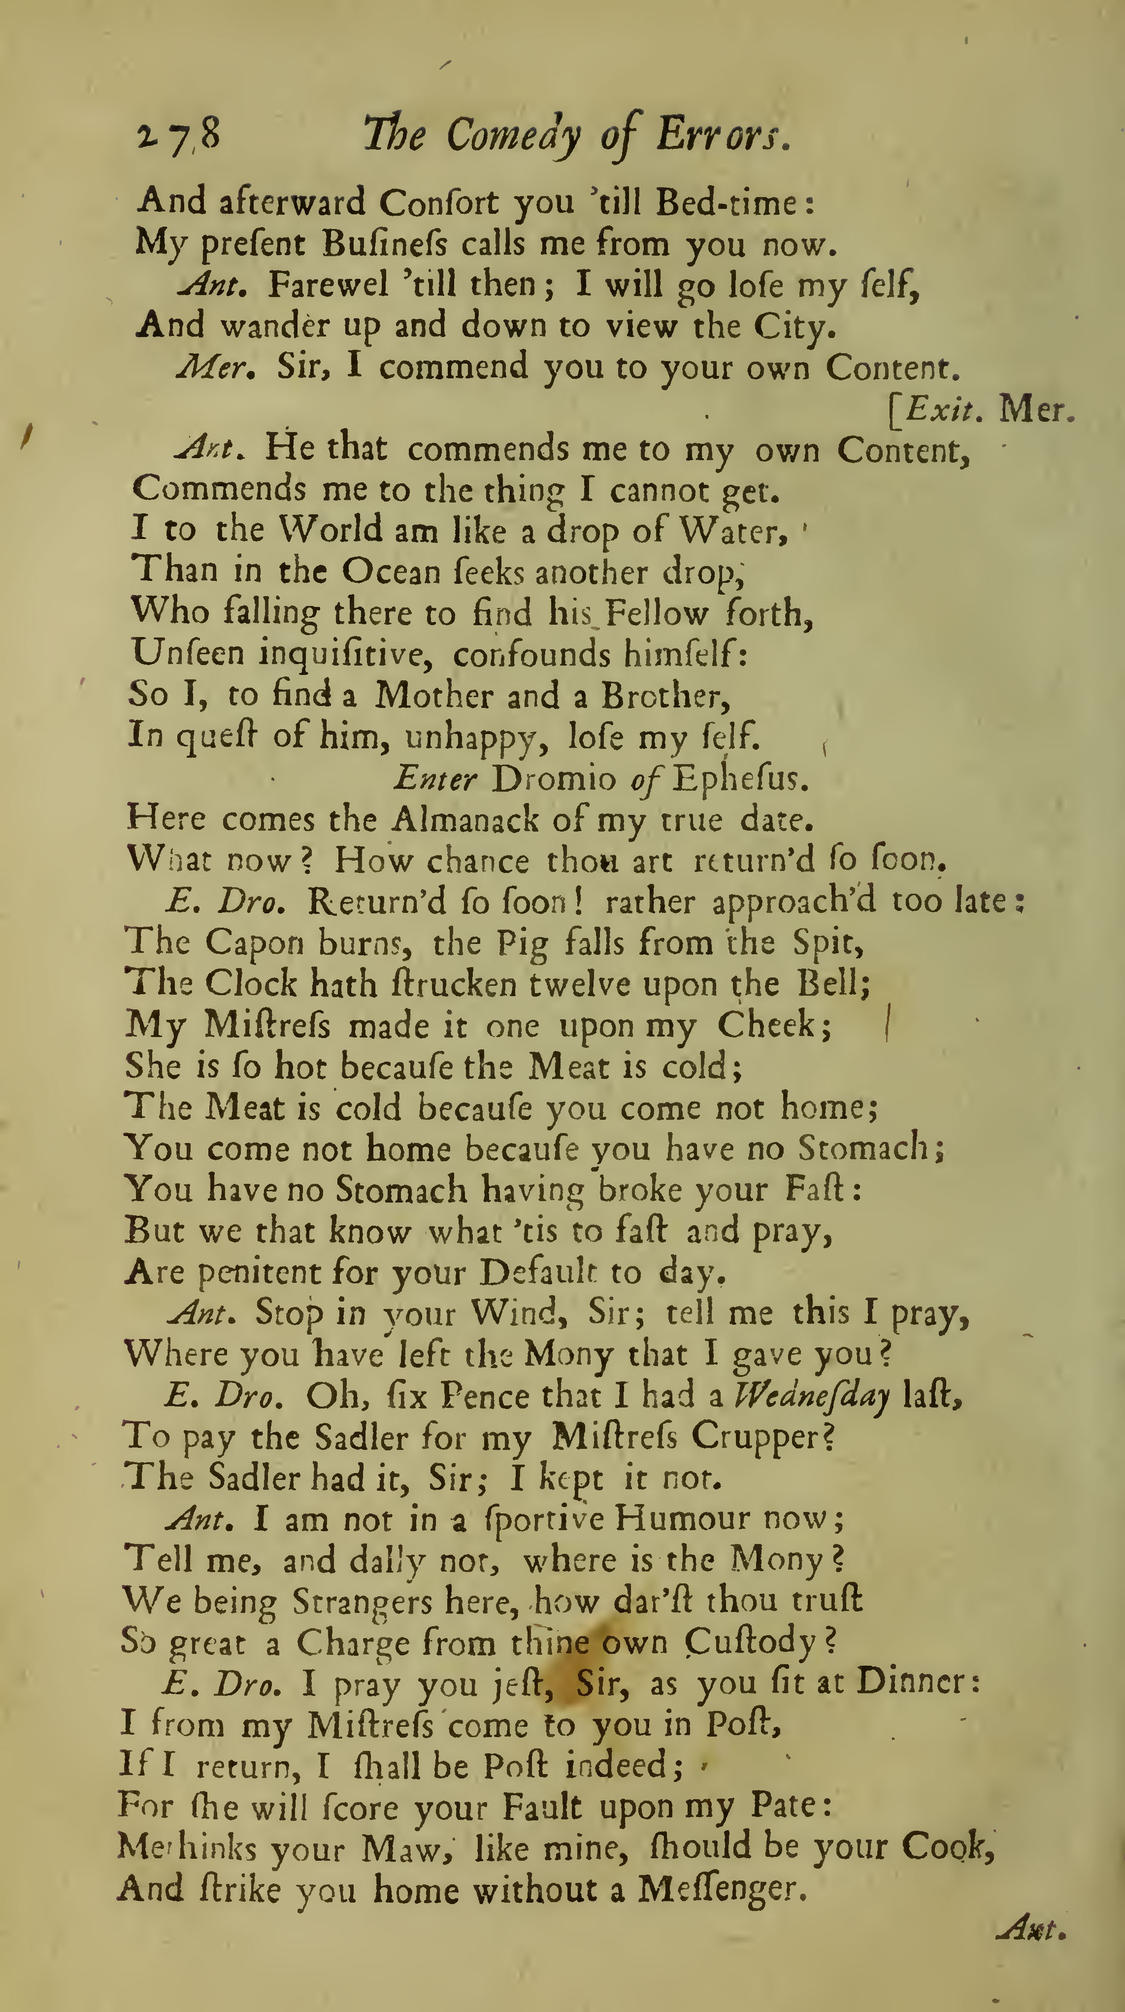 278 The Comedy of Errors.
And afterward Conſort you 'till Bed-time:
My preſent Buſineſs calls me from you now.
Ant. Farewel 'till then; I will go loſe my ſelf,
And wander up and down to view the City.
Mer. Sir, I commend you to your own Content.
[Exit. Mer.
Ant. He that commends me to my own Content,
Commends me to the thing I cannot get.
I to the World am like a drop of Water,
Than in the Ocean ſeeks another drop,
Who falling there to find his Fellow forth,
Unſeen inquiſitive, confounds himſelf:
So I, to find a Mother and a Brother,
In queſt of him, unhappy, loſe my ſelf.
Enter Dromio of Epheſus.
Here comes the Almanack of my true date.
What now? How chance thou art return'd ſo ſoon.
E. Dro. Return'd ſo ſoon! rather approach'd too late:
The Capon burns, the Pig falls from the Spit,
The Clock hath ſtrucken twelve upon the Bell;
My Miſtreſs made it one upon my Cheek;
She is ſo hot becauſe the Meat is cold;
The Meat is cold becauſe you come not home;
You come not home becauſe you have no Stomach;
You have no Stomach having broke your Faſt:
But we that know what 'tis to faſt and pray,
Are penitent for your Default to day.
Ant. Stop in your Wind, Sir; tell me this I pray,
Where you have left the Mony that I gave you?
E. Dro. Oh, ſix Pence that I had a Wedneſday laſt,
To pay the Sadler for my Miſtreſs Crupper?
The Sadler had it, Sir; I kept it not.
Ant. I am not in a ſportive Humour now;
Tell me, and dally not, where is the Mony?
We being Strangers here, how dar'ſt thou truſt
So great a Charge from thine own Cuſtody?
E. Dro. I pray you jeſt, Sir, as you ſit at Dinner:
I from my Miſtreſs come to you in Poſt,
If I return, I ſhall be Poſt indeed;
For ſhe will ſcore your Fault upon my Pate:
Methinks your Maw, like mine, ſhould be your Cook,
And ſtrike you home without a Meſſenger.
Ant.